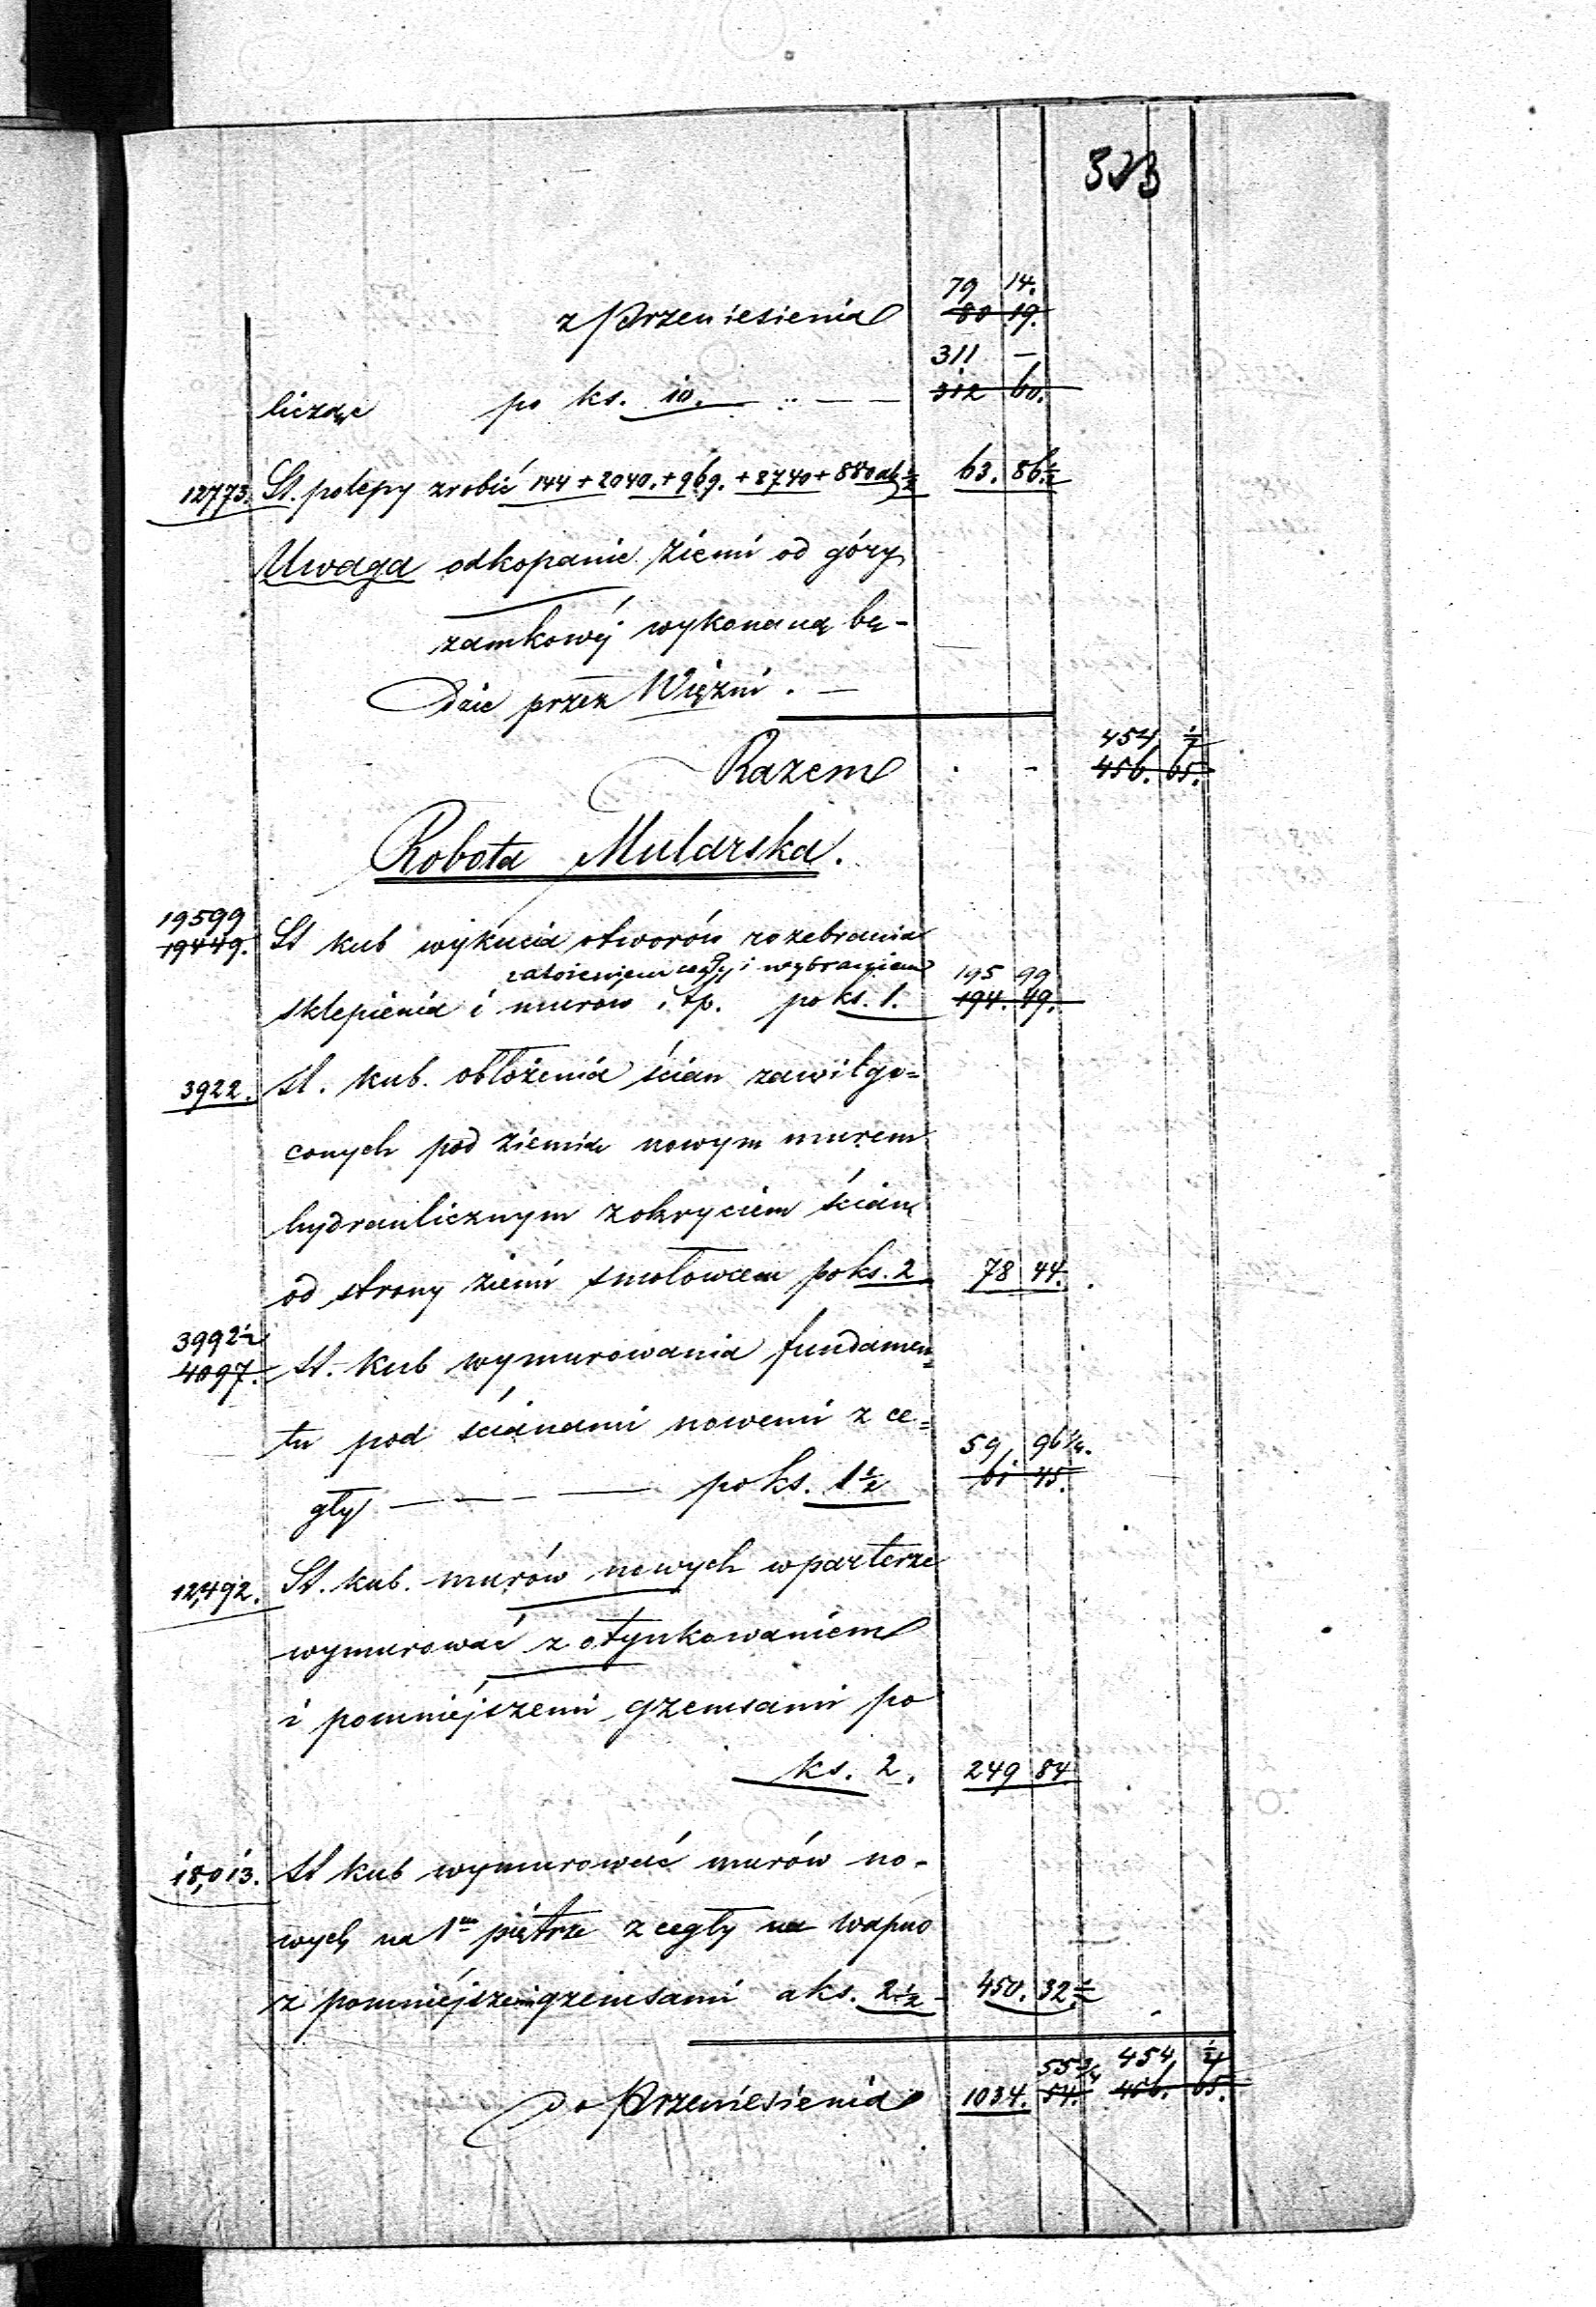 z Przeniesienia 79 14.
80 19.
311 —
licząc po ks. 10. — 312 60.
12773. St. polepy zrobić 144 + 2040. + 969. + 8740 + 880 a k ½ 63. 86½
Uwaga odkopanie ziemi od góry
zamkowéj wykonaną bę-
dzie przez Więzni. —
454 ½
Razem . - 456. 65.
Robota Mularska.
19599
19449. St kub wykucia otworów rozebrania
z ułożeniem cegły i wybraniem 195 99
sklepienia i murów itp. po ks. 1. 194. 49.
3922. st. kub. obłożenia ścian zawilgo=
conych pod ziemią nowym murem
hydraulicznym z okryciem ścian
od strony ziemi smołowcem po ks. 2 78 44.
3992½
4097. st. kub wymurowania fundamen=
tu pod ścianami nowemi z ce=
59, 96¼.
gły — — — po ks. 1½ 61 45.
12,492. St. kub. murów nowych w parterze
wymurować z otynkowaniem
i pomniéjszemi gzemsami po
ks. 2. 249 84
18,013. st kub wymurować murów no-
wych na 1m piętrze z cegły na wapno
z pomniéjszemi gzemsami a ks. 2½ 450. 32½
55¾ 454
do Przeniesienia 1034. 54. 456. 65.